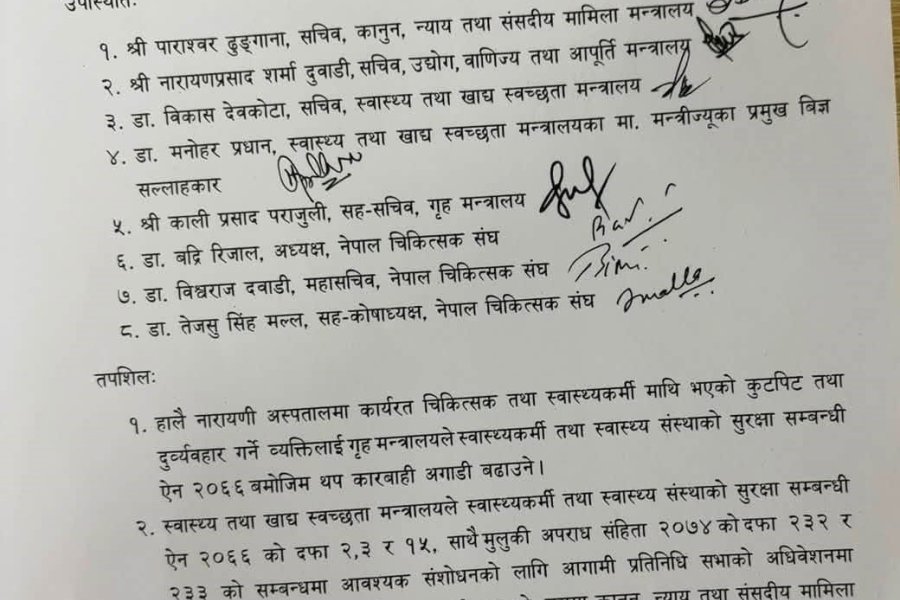 उपस्थितिः
१. श्री पाराश्वर ढुङ्गाना, सचिव, कानुन, न्याय तथा संसदीय मामिला मन्त्रालय
२. श्री नारायणप्रसाद शर्मा दुवाडी, सचिव, उद्योग, वाणिज्य तथा आपूर्ति मन्त्रालय
३. डा. विकास देवकोटा, सचिव, स्वास्थ्य तथा खाद्य स्वच्छता मन्त्रालय
४. डा. मनोहर प्रधान, स्वास्थ्य तथा खाद्य स्वच्छता मन्त्रालयका मा. मन्त्रीज्यूका प्रमुख बिज्ञ
सल्लाहकार
५. श्री काली प्रसाद पराजुली, सह-सचिव, गृह मन्त्रालय
६. डा. बद्रि रिजाल, अध्यक्ष, नेपाल चिकित्सक संघ
७. डा. विश्वराज दवाडी, महासचिव, नेपाल चिकित्सक संघ
८. डा. तेजसु सिंह मल्ल, सह-कोषाध्यक्ष, नेपाल चिकित्सक संघ
तपशिलः
१. हालै नारायणी अस्पतालमा कार्यरत चिकित्सक तथा स्वास्थ्यकर्मी माथि भएको कुटपिट तथा
दुर्व्यवहार गर्ने व्यक्तिलाई गृह मन्त्रालयले स्वास्थ्यकर्मी तथा स्वास्थ्य संस्थाको सुरक्षा सम्बन्धी
ऐन २०६६ बमोजिम थप कारबाही अगाडी बढाउने।
२. स्वास्थ्य तथा खाद्य स्वच्छता मन्त्रालयले स्वास्थ्यकर्मी तथा स्वास्थ्य संस्थाको सुरक्षा सम्बन्धी
ऐन २०६६ को दफा २,३ र १५, साथै मुलुकी अपराध संहिता २०७४ को दफा २३२ र
२३३ को सम्बन्धमा आवश्यक संशोधनको लागि आगामी प्रतिनिधि सभाको अधिवेशनमा
कानुन, न्याय तथा संसदीय मामिला